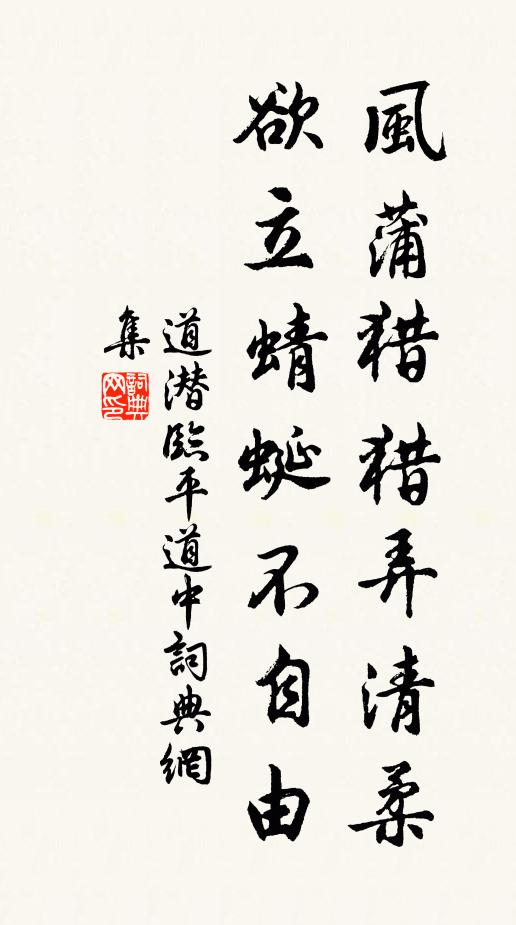 風蒲猎猎弄清柔
欲立蜻蜓不自由
道潛臨平道中詞典網
集
詞典
网印